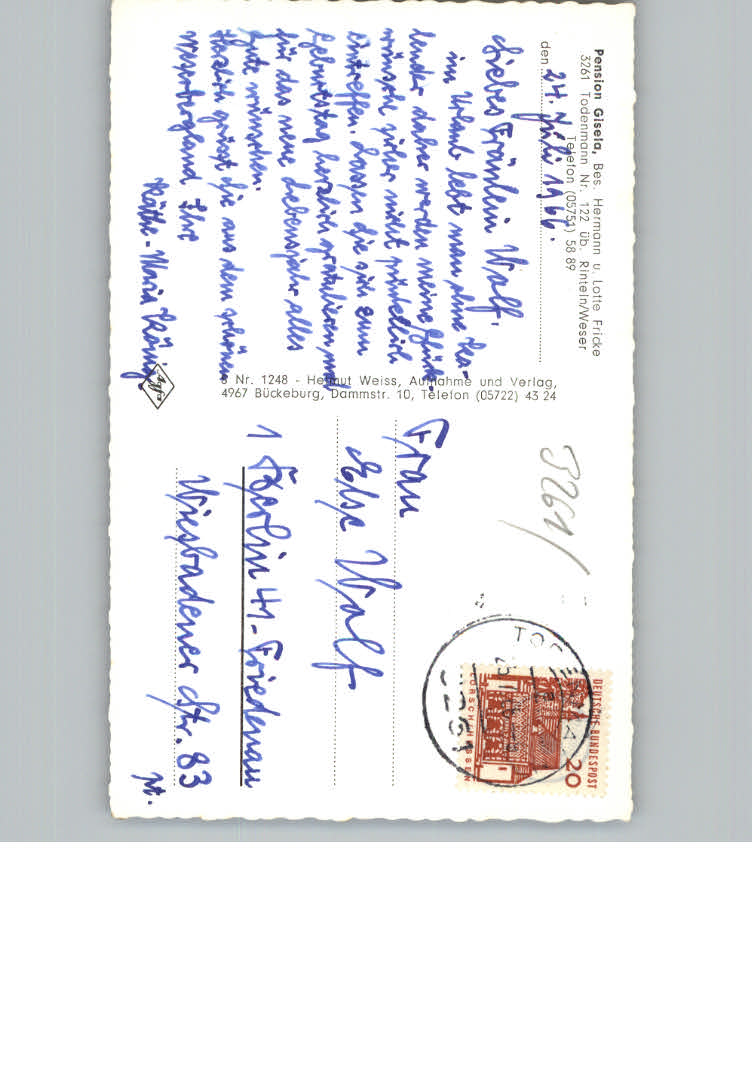 Pension Gisela, Bes. Hermann u. Lotte Fricke
3261 Todenmann Nr. 122 üb. Rinteln/Weser
Telefon (05751) 58 89
den 24. Juli 1966.
Liebes Fräulein Wolf,
im Urlaub lebt man ohne Ka-
lender daher werden meine Glück-
wünsche sicher nicht pünktlich
eintreffen. Lassen Sie sich zum
Geburtstag herzlich gratulieren und
für das neue Lebensjahr alles
Gute wünschen.
Herzlich grüßt Sie aus dem schönen
Weserbergland Ihre
Käthe-Maria König
Agfa
Nr. 1248 - Helmut Weiss, Aufnahme und Verlag,
4967 Bückeburg, Dammstr. 10, Telefon (05722) 43 24
3261
Frau
Else Wolf
1 Berlin 41-Friedenau
Wiesbadener Str. 83
pt.
DEUTSCHE BUNDESPOST
20
LORSCH/HESSEN
3261